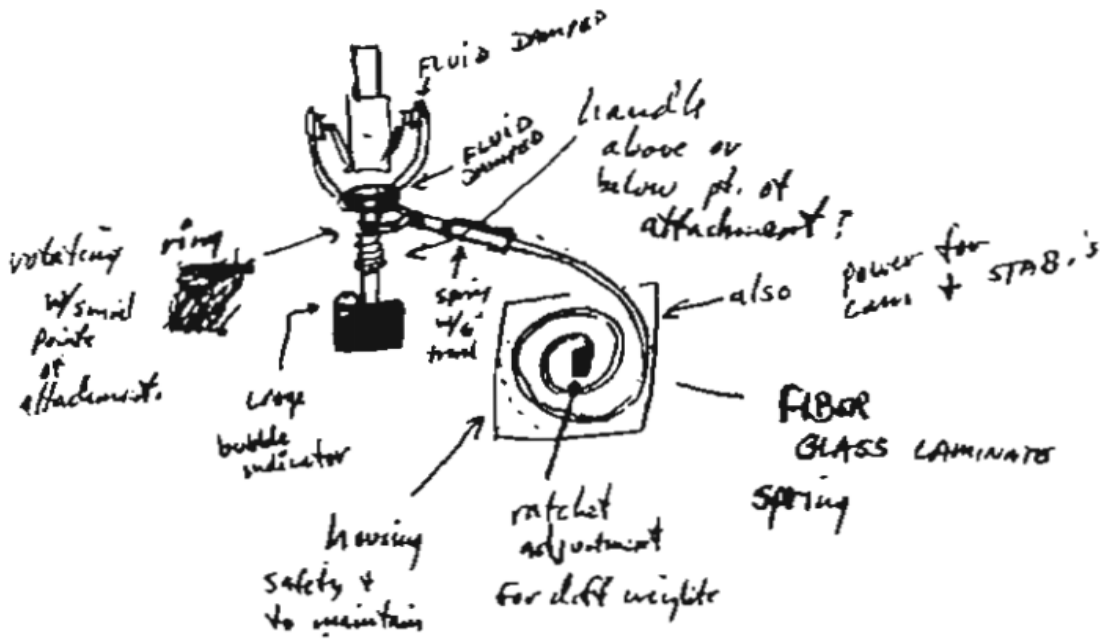 FLUID DAMPED
FLUID
DAMPED
handle
above or
below pt. of
attachment?
rotating ring
w/
points
of
attachment.
spring
w/6"
travel
also
power for
cam + STAB.'s
bubble
indicator
FIBER
GLASS LAMINATE
spring
housing
safety +
to maintain
ratchet
adjustment
for diff weights